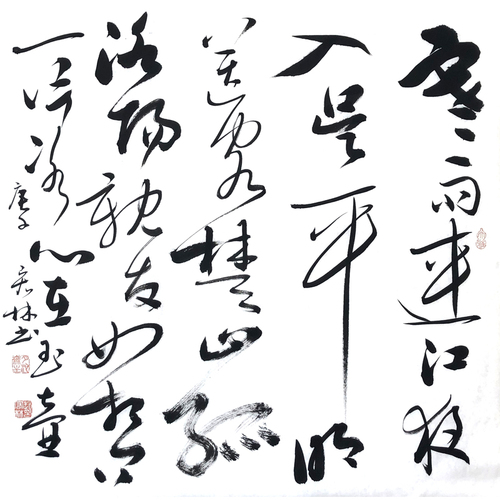 寒雨連江夜
入吴平明
送客楚山孤
洛陽親友如相问
一片冰心在玉壶
庚子 林书